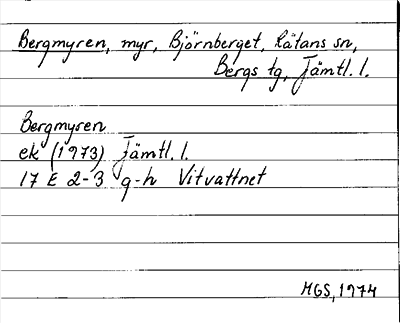 Bergmyren, myr, Björnberget, Rätans sn,
Bergs tg, Jämtl. l.
Bergmyren
ek (1973) Jämtl. l.
17 E 2-3 g-h Vitvattnet
MGS, 1974